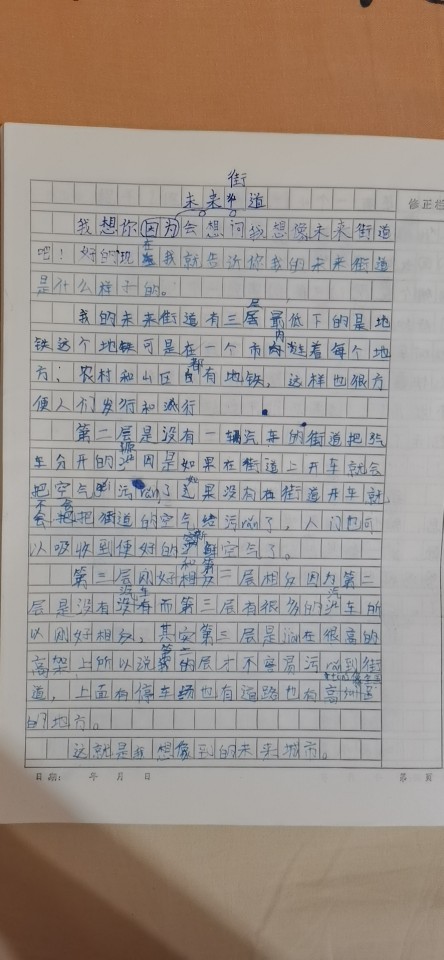 街
未来 道
修正栏
我想你因为会想问我想像未来街道
吧！好的现在我就告诉你我的未来街道
是什么样子的。
我的未来街道有三层最低下的是地
铁这个地铁可是在一个市内连着每个地
方；农村和山区都有地铁，这样也很方
便人们发行和流行
第二层是没有一辆汽车的街道把汽
车分开的 因是如果在街道上开车就会
把空气 污 了如果没有在街道开车就
不会把街道的空气给污 了，人们也可
以吸收到更好的新鲜空气了。
第三层刚好和第二层相反因为第二
层是没有汽车而第三层有很多的汽车所
以刚好相反，其实第三层是 在很高的
高架上所以说第二的层才不容易污 到街
道，上面有停车场也有道路也有高
的地方。
这就是我想像到的未来城市。
日期： 年 月 日 第 页